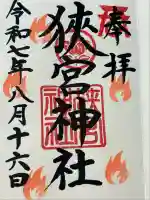 奉拝
狹宮神社
令和七年八月十六日